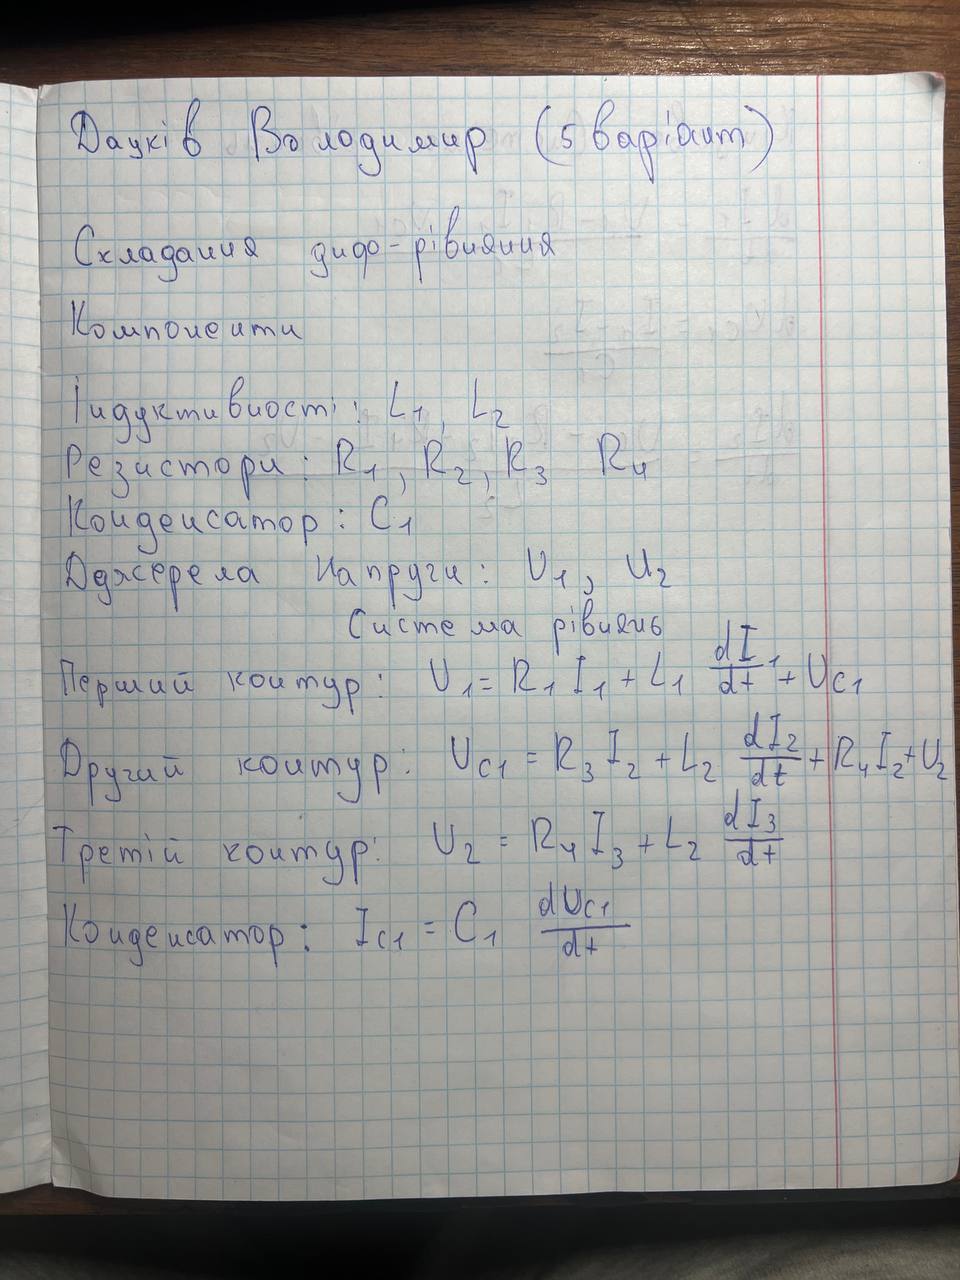 Дауків Володимир (5 варіант)
Складання диф-рівняння
Компоненти
Індуктивності: L₁, L₂
Резистори: R₁, R₂, R₃ R₄
Конденсатор: C₁
Дджерела напруги: U₁, U₂
Система рівнянь
Перший контур: U₁ = R₁ I₁ + L₁ dI₁/dt + U_C1
Другий контур: U_C1 = R₃ I₂ + L₂ dI₂/dt + R₄ I₂ + U₂
Третій контур: U₂ = R₄ I₃ + L₂ dI₃/dt
Конденсатор: I_C1 = C₁ dU_C1/dt